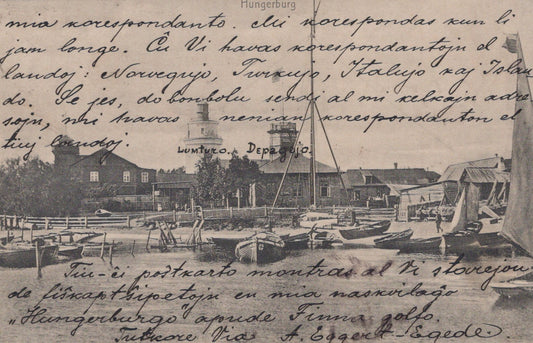 Hungerburg
mia korespondanto. Mi korespondas kun li
jam longe. Ĉu Vi havas korespondantojn el
landoj: Norvegujo, Turkujo, Italujo kaj Islan
do. Se jes, do bonvolu sendi al mi kelkajn adre
sojn, mi havas nenian korespondanton el
tiuj landoj.
Lumturo. Depagejo.
Tiu-ĉi poŝtkarto montras al Vi starejon
de fiŝkaptŝipetojn en mia naskvilaĝo
„Hungerburgo" apude Finna golfo.
Tutkore Via A. Eggert-Egede.